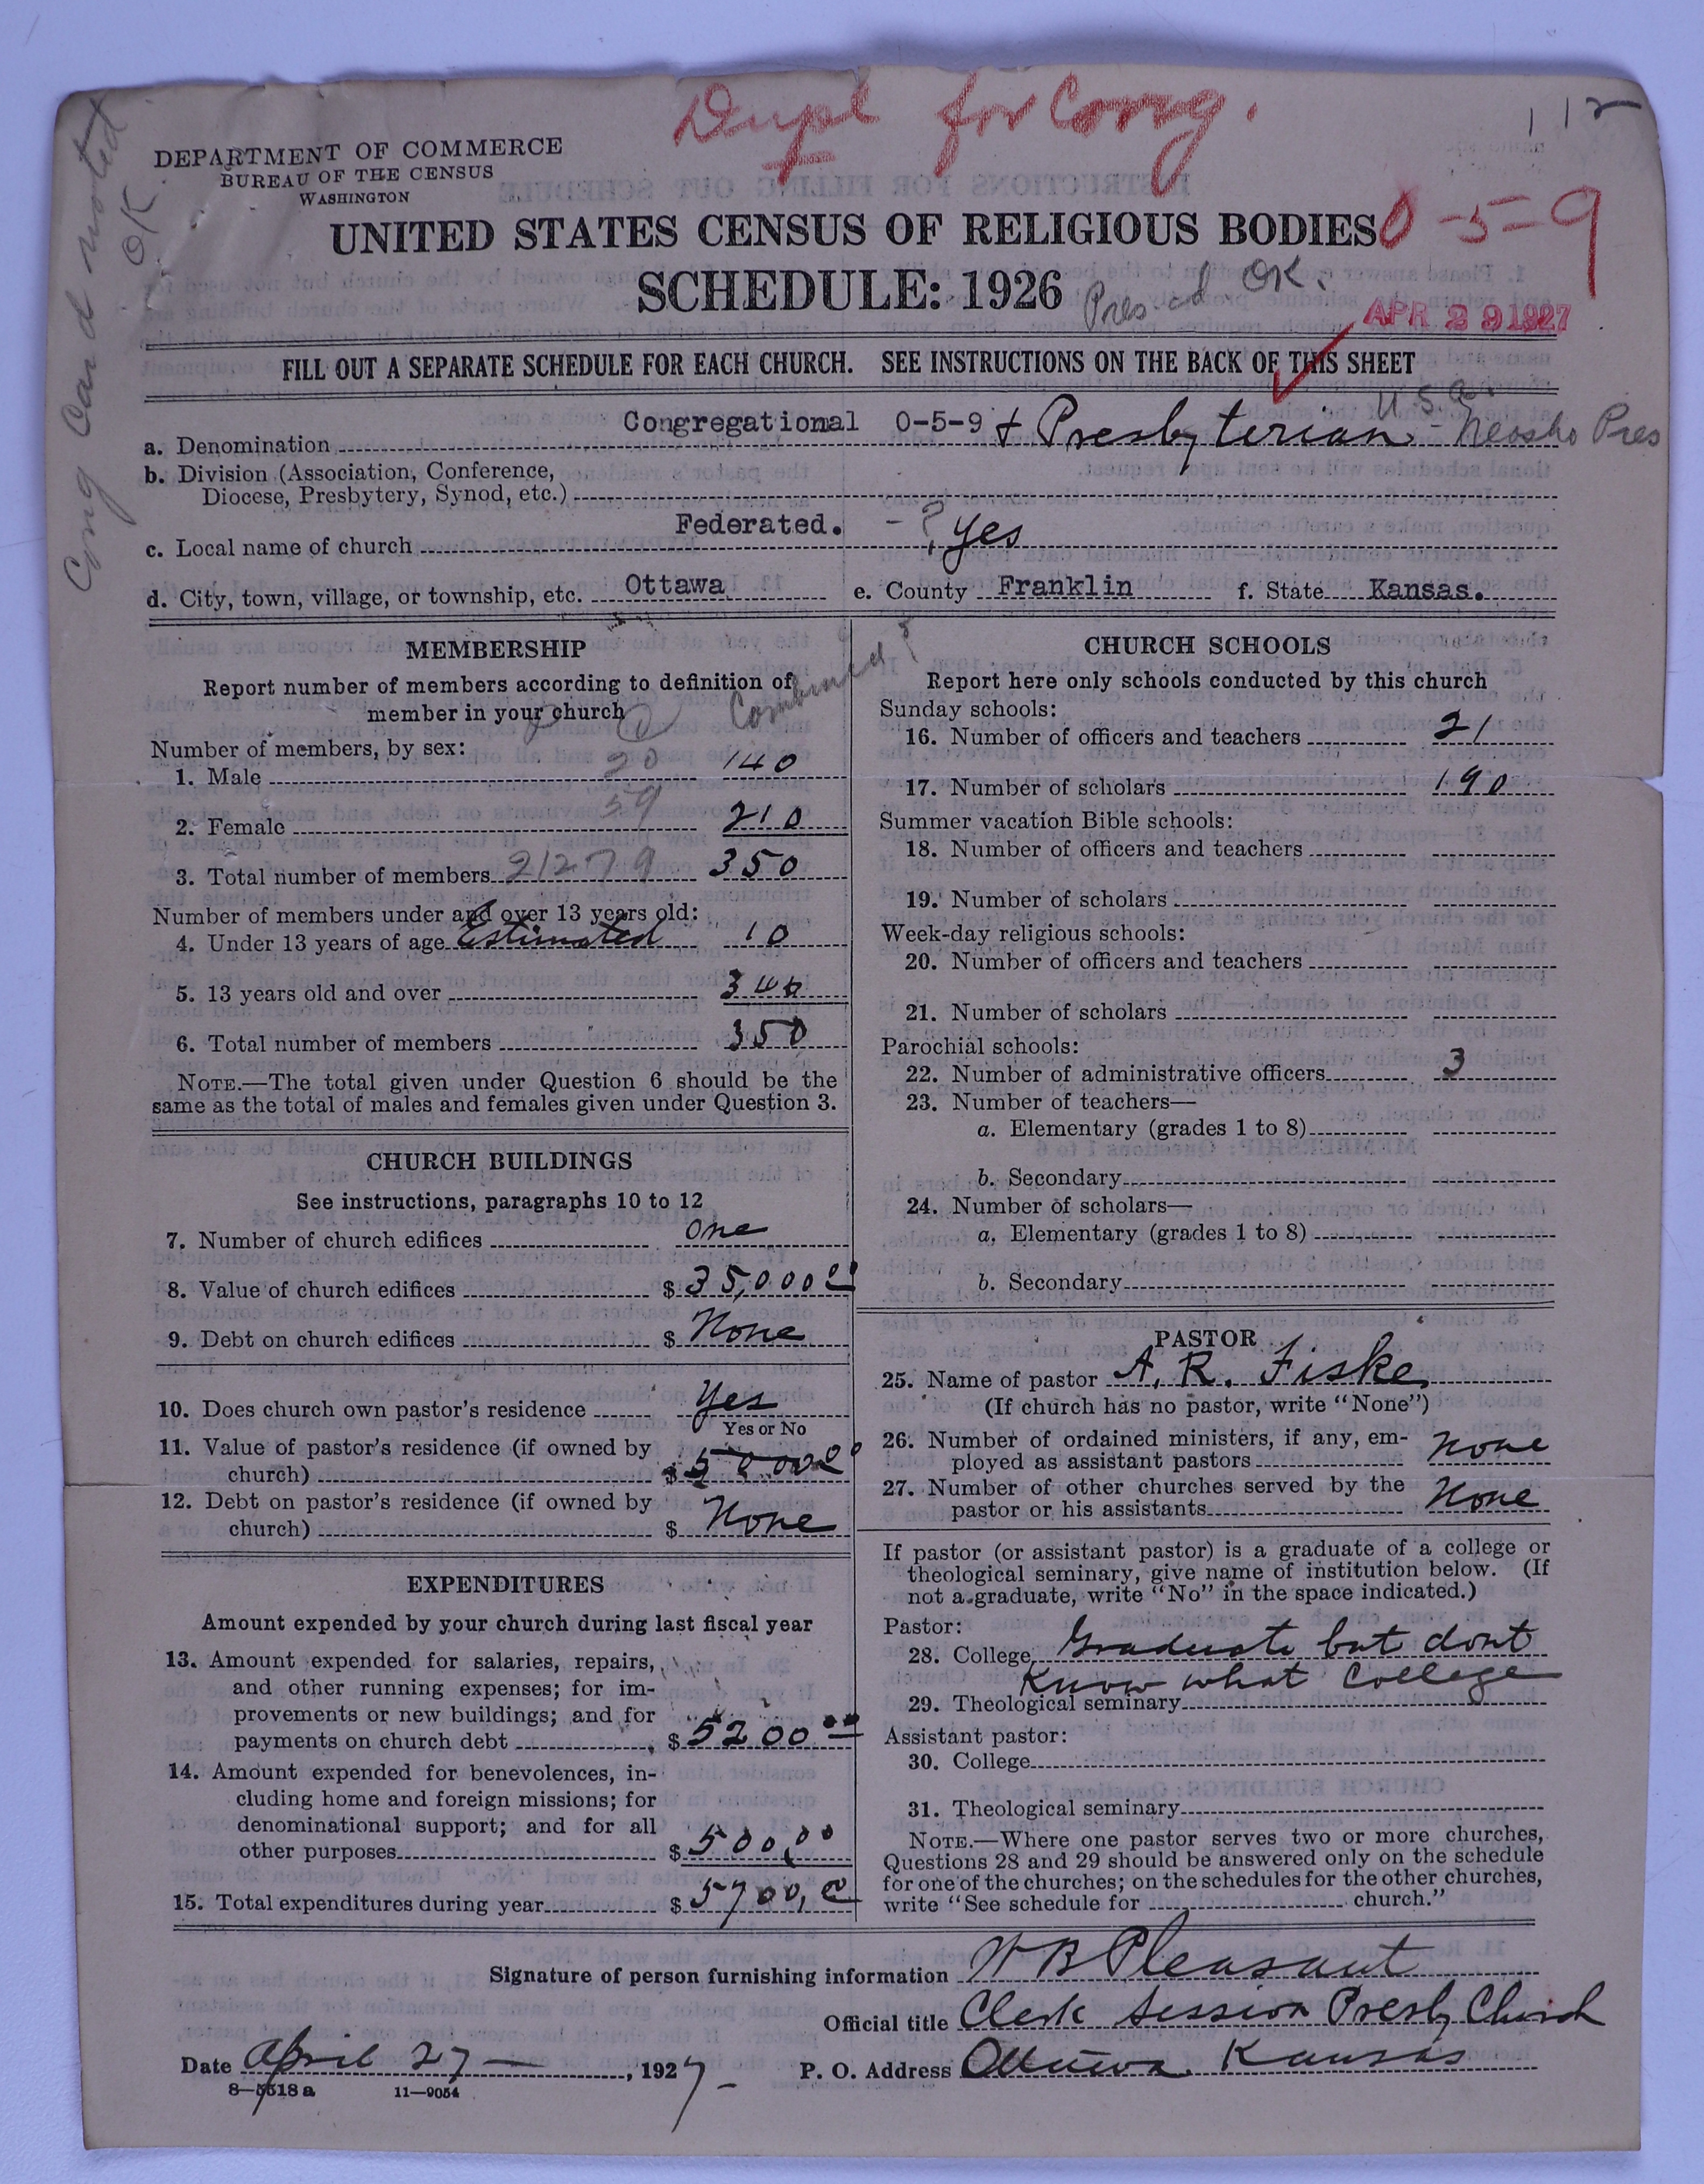 Dupl for Cong.
112
Cong Card noted
OK
DEPARTMENT OF COMMERCE
BUREAU OF THE CENSUS
WASHINGTON
UNITED STATES CENSUS OF RELIGIOUS BODIES
0-5-9
SCHEDULE: 1926
Pres. cd OK.
APR 29 1927
FILL OUT A SEPARATE SCHEDULE FOR EACH CHURCH. SEE INSTRUCTIONS ON THE BACK OF THIS SHEET
U.S.A.
a. Denomination Congregational 0-5-9 + Presbyterian - Neosho Pres
b. Division (Association, Conference,
Diocese, Presbytery, Synod, etc.)
c. Local name of church Federated. - ? yes
d. City, town, village, or township, etc. Ottawa e. County Franklin f. State Kansas.
MEMBERSHIP
Report number of members according to definition of
member in your church
Combined ?
Number of members, by sex:
1. Male 20 140
2. Female 59 210
3. Total number of members 212 79 350
Number of members under and over 13 years old:
4. Under 13 years of age Estimated 10
5. 13 years old and over 340
6. Total number of members 350
NOTE.—The total given under Question 6 should be the
same as the total of males and females given under Question 3.
CHURCH BUILDINGS
See instructions, paragraphs 10 to 12
7. Number of church edifices one
8. Value of church edifices $ 35,000 00
9. Debt on church edifices $ None
10. Does church own pastor's residence Yes
Yes or No
11. Value of pastor's residence (if owned by
church) $ 5000 00
12. Debt on pastor's residence (if owned by
church) $ None
EXPENDITURES
Amount expended by your church during last fiscal year
13. Amount expended for salaries, repairs,
and other running expenses; for im-
provements or new buildings; and for
payments on church debt $ 5200 00
14. Amount expended for benevolences, in-
cluding home and foreign missions; for
denominational support; and for all
other purposes $ 500 00
15. Total expenditures during year $ 5700,00
CHURCH SCHOOLS
Report here only schools conducted by this church
Sunday schools:
16. Number of officers and teachers 21
17. Number of scholars 190
Summer vacation Bible schools:
18. Number of officers and teachers
19. Number of scholars
Week-day religious schools:
20. Number of officers and teachers
21. Number of scholars
Parochial schools:
22. Number of administrative officers 3
23. Number of teachers—
a. Elementary (grades 1 to 8)
b. Secondary
24. Number of scholars—
a. Elementary (grades 1 to 8)
b. Secondary
PASTOR
25. Name of pastor A. R. Fiske
(If church has no pastor, write "None")
26. Number of ordained ministers, if any, em-
ployed as assistant pastors None
27. Number of other churches served by the
pastor or his assistants None
If pastor (or assistant pastor) is a graduate of a college or
theological seminary, give name of institution below. (If
not a graduate, write "No" in the space indicated.)
Pastor:
28. College Graduate but dont
Know what College
29. Theological seminary
Assistant pastor:
30. College
31. Theological seminary
NOTE.—Where one pastor serves two or more churches,
Questions 28 and 29 should be answered only on the schedule
for one of the churches; on the schedules for the other churches,
write "See schedule for church."
Signature of person furnishing information W B Pleasant
Official title Clerk Session Presby Church
Date April 27 — , 1927 P. O. Address Ottawa Kansas
8—5518 a 11—9054